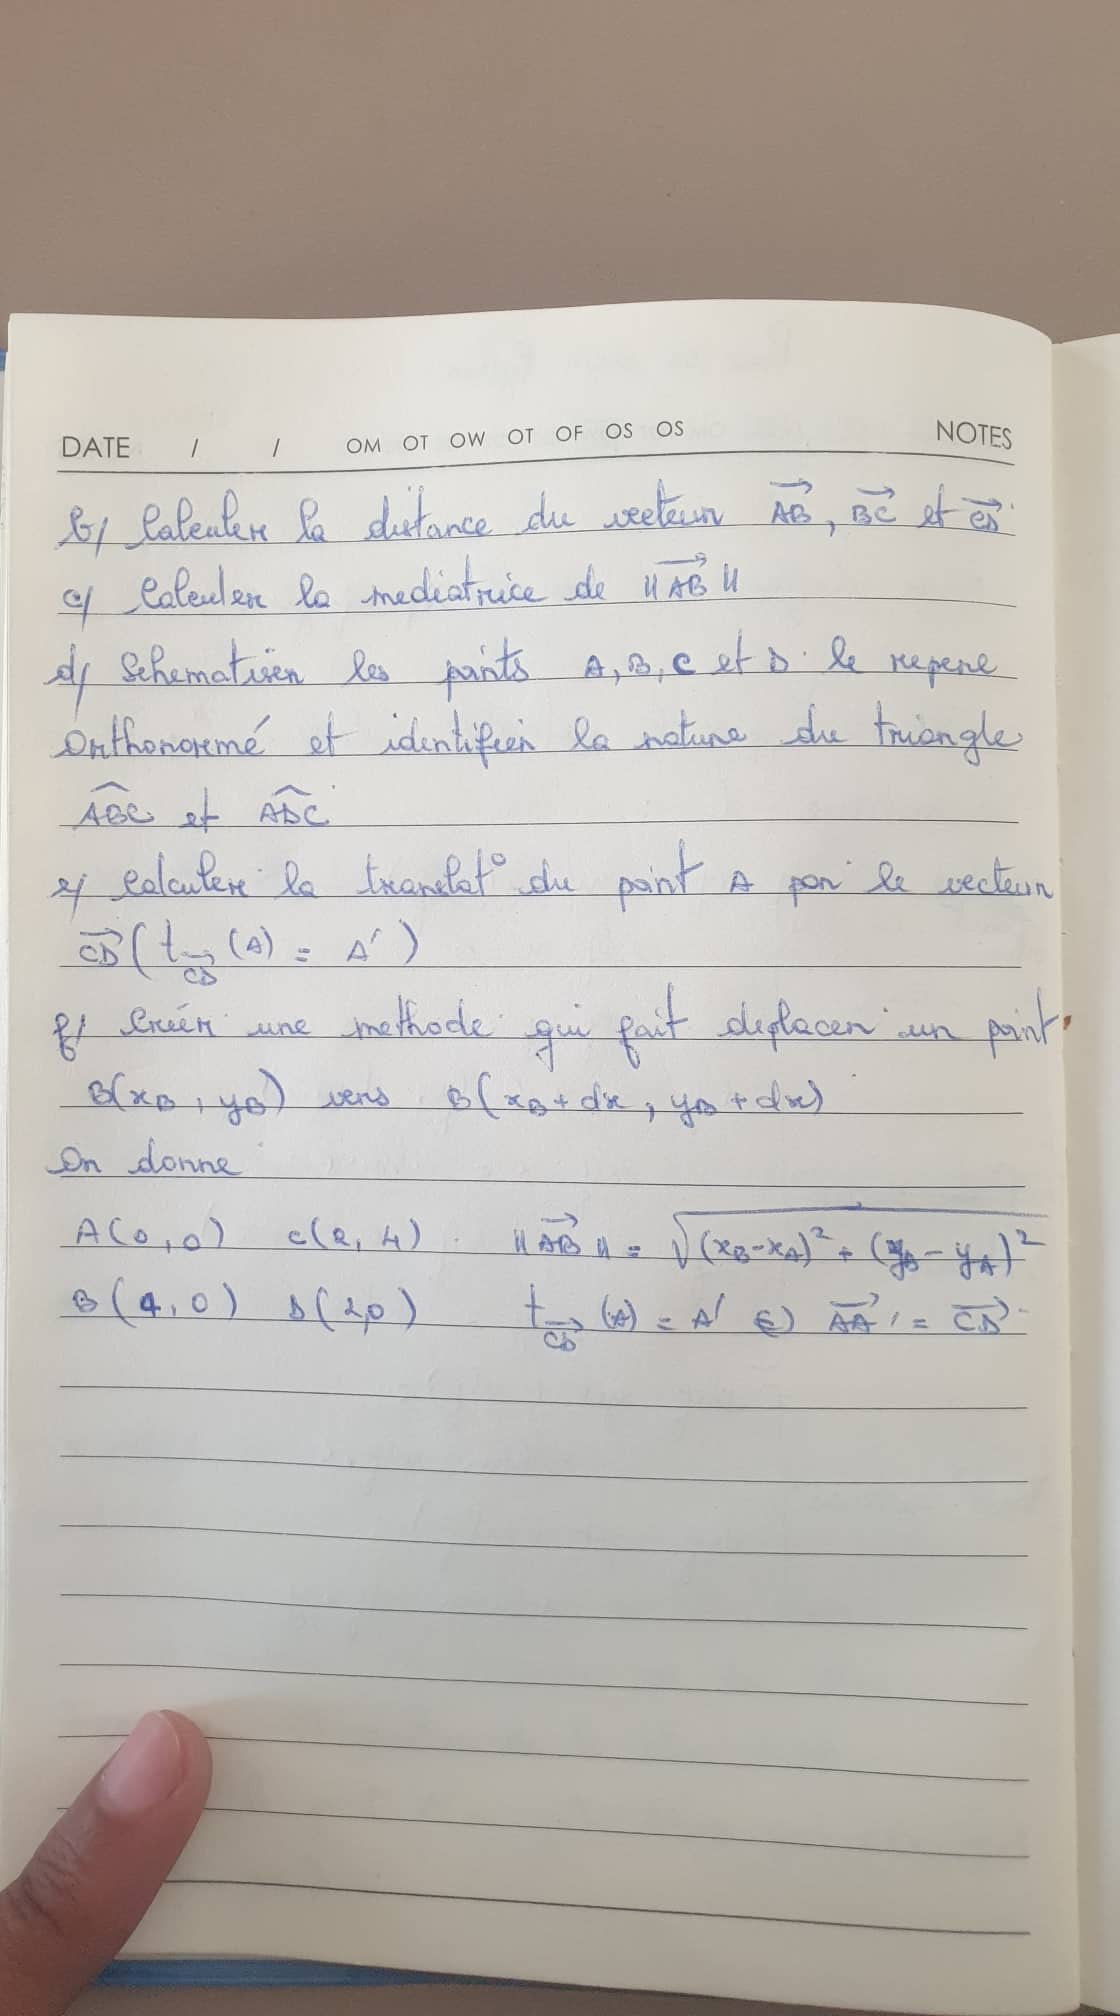 DATE / / OM OT OW OT OF OS OS NOTES
b/ Calculer la distance du vecteur AB, BC et CD
c/ Calculer la mediatrice de ||AB||
d/ Schematisér les points A, B, C et D le repere
Orthonormé et identifier la nature du triangle
ABC et ADC
e/ Calculer la translat° du point A par le vecteur
CD (t CD (A) = A')
f/ Créér une methode qui fait deplacer un point
B(xB, yB) vers B(xB + dx, yB + dx)
On donne
A(0,0) C(2,4) ||AB|| = √(xB-xA)² + (yB-yA)²
B(4,0) D(2,0) t CD (A) = A' AA' = CD